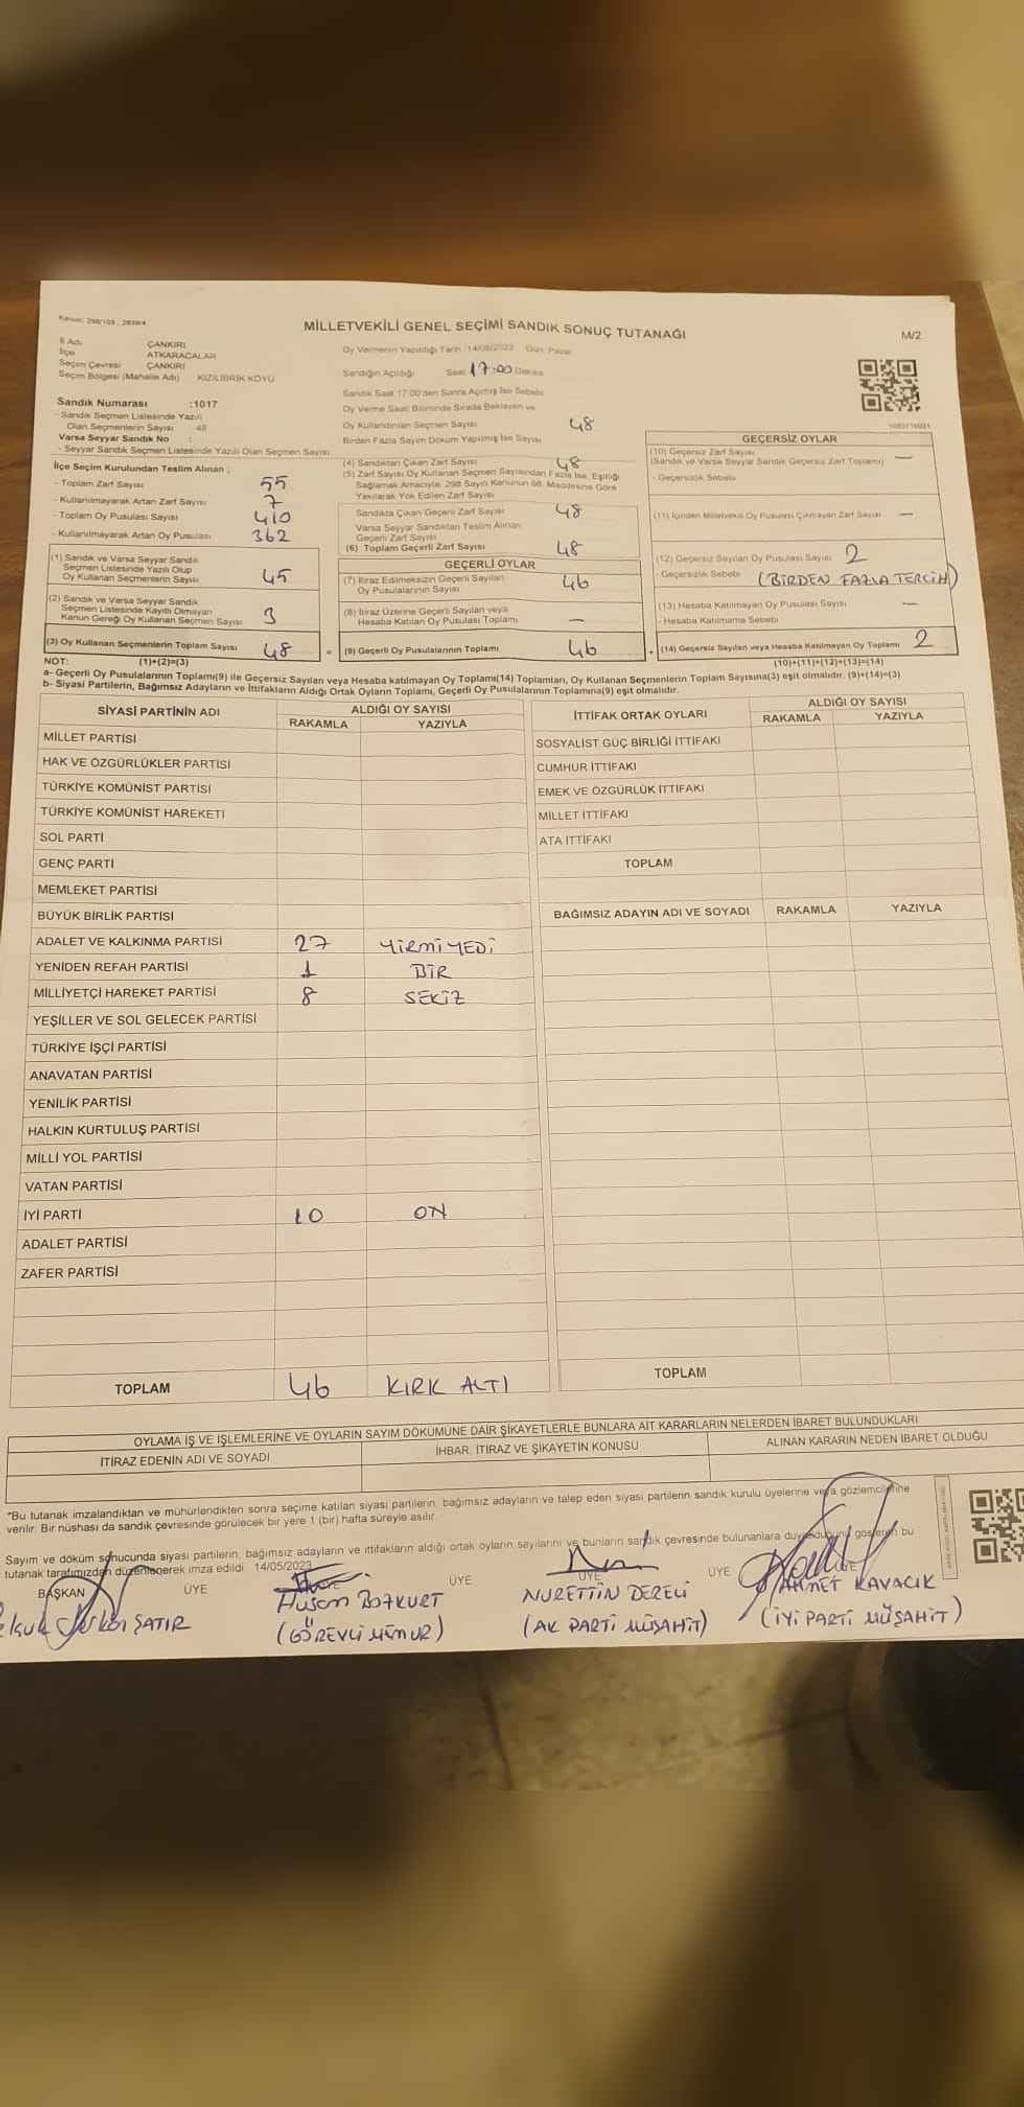 Kanun: 298/105, 2839/4
MİLLETVEKİLİ GENEL SEÇİMİ SANDIK SONUÇ TUTANAĞI
M/2
İl Adı ÇANKIRI
İlçe ATKARACALAR
Seçim Çevresi ÇANKIRI
Seçim Bölgesi (Mahalle Adı) KIZILİBRİK KÖYÜ
Sandık Numarası :1017
- Sandık Seçmen Listesinde Yazılı
Olan Seçmenlerin Sayısı 48
Varsa Seyyar Sandık No :
- Seyyar Sandık Seçmen Listesinde Yazılı Olan Seçmen Sayısı
İlçe Seçim Kurulundan Teslim Alınan ;
- Toplam Zarf Sayısı 55
- Kullanılmayarak Artan Zarf Sayısı 7
- Toplam Oy Pusulası Sayısı 410
- Kullanılmayarak Artan Oy Pusulası 362
(1) Sandık ve Varsa Seyyar Sandık
Seçmen Listesinde Yazılı Olup
Oy Kullanan Seçmenlerin Sayısı 45
(2) Sandık ve Varsa Seyyar Sandık
Seçmen Listesinde Kayıtlı Olmayan
Kanun Gereği Oy Kullanan Seçmen Sayısı 3
(3) Oy Kullanan Seçmenlerin Toplam Sayısı 48
(1)+(2)=(3)
Oy Vermenin Yapıldığı Tarih: 14/05/2023 Gün: Pazar
Sandığın Açıldığı Saat 17:00 Dakika
Sandık Saat 17:00'den Sonra Açılmış İse Sebebi
Oy Verme Saati Bitiminde Sırada Bekleyen ve
Oy Kullandırılan Seçmen Sayısı 48
Birden Fazla Sayım Döküm Yapılmış İse Sayısı
(4) Sandıktan Çıkan Zarf Sayısı 48
(5) Zarf Sayısı Oy Kullanan Seçmen Sayısından Fazla İse, Eşitliği
Sağlamak Amacıyla, 298 Sayılı Kanunun 98. Maddesine Göre
Yakılarak Yok Edilen Zarf Sayısı
Sandıkta Çıkan Geçerli Zarf Sayısı 48
Varsa Seyyar Sandıktan Teslim Alınan
Geçerli Zarf Sayısı
(6) Toplam Geçerli Zarf Sayısı 48
GEÇERLİ OYLAR
(7) İtiraz Edilmeksizin Geçerli Sayılan
Oy Pusulalarının Sayısı 46
(8) İtiraz Üzerine Geçerli Sayılan veya
Hesaba Katılan Oy Pusulası Toplamı —
(9) Geçerli Oy Pusulalarının Toplamı 46
GEÇERSİZ OYLAR
(10) Geçersiz Zarf Sayısı
(Sandık ve Varsa Seyyar Sandık Geçersiz Zarf Toplamı) —
- Geçersizlik Sebebi
(11) İçinden Milletvekili Oy Pusulası Çıkmayan Zarf Sayısı —
(12) Geçersiz Sayılan Oy Pusulası Sayısı 2
- Geçersizlik Sebebi (BİRDEN FAZLA TERCİH)
(13) Hesaba Katılmayan Oy Pusulası Sayısı —
- Hesaba Katılmama Sebebi
(14) Geçersiz Sayılan veya Hesaba Katılmayan Oy Toplamı 2
(10)+(11)+(12)+(13)=(14)
NOT:
a- Geçerli Oy Pusulalarının Toplamı(9) ile Geçersiz Sayılan veya Hesaba Katılmayan Oy Toplamı(14) Toplamları, Oy Kullanan Seçmenlerin Toplam Sayısına(3) eşit olmalıdır. (9)+(14)=(3)
b- Siyasi Partilerin, Bağımsız Adayların ve İttifakların Aldığı Ortak Oyların Toplamı, Geçerli Oy Pusulalarının Toplamına(9) eşit olmalıdır.
SİYASİ PARTİNİN ADI ALDIĞI OY SAYISI
RAKAMLA YAZIYLA
MİLLET PARTİSİ
HAK VE ÖZGÜRLÜKLER PARTİSİ
TÜRKİYE KOMÜNİST PARTİSİ
TÜRKİYE KOMÜNİST HAREKETİ
SOL PARTİ
GENÇ PARTİ
MEMLEKET PARTİSİ
BÜYÜK BİRLİK PARTİSİ
ADALET VE KALKINMA PARTİSİ 27 YİRMİYEDİ
YENİDEN REFAH PARTİSİ 1 BİR
MİLLİYETÇİ HAREKET PARTİSİ 8 SEKİZ
YEŞİLLER VE SOL GELECEK PARTİSİ
TÜRKİYE İŞÇİ PARTİSİ
ANAVATAN PARTİSİ
YENİLİK PARTİSİ
HALKIN KURTULUŞ PARTİSİ
MİLLİ YOL PARTİSİ
VATAN PARTİSİ
İYİ PARTİ 10 ON
ADALET PARTİSİ
ZAFER PARTİSİ
TOPLAM 46 KIRK ALTI
İTTİFAK ORTAK OYLARI ALDIĞI OY SAYISI
RAKAMLA YAZIYLA
SOSYALİST GÜÇ BİRLİĞİ İTTİFAKI
CUMHUR İTTİFAKI
EMEK VE ÖZGÜRLÜK İTTİFAKI
MİLLET İTTİFAKI
ATA İTTİFAKI
TOPLAM
BAĞIMSIZ ADAYIN ADI VE SOYADI RAKAMLA YAZIYLA
TOPLAM
OYLAMA İŞ VE İŞLEMLERİNE VE OYLARIN SAYIM DÖKÜMÜNE DAİR ŞİKAYETLERLE BUNLARA AİT KARARLARIN NELERDEN İBARET BULUNDUKLARI
İTİRAZ EDENİN ADI VE SOYADI İHBAR, İTİRAZ VE ŞİKAYETİN KONUSU ALINAN KARARIN NEDEN İBARET OLDUĞU
*Bu tutanak imzalandıktan ve mühürlendikten sonra seçime katılan siyasi partilerin, bağımsız adayların ve talep eden siyasi partilerin sandık kurulu üyelerine veya gözlemcilerine
verilir. Bir nüshası da sandık çevresinde görülecek bir yere 1 (bir) hafta süreyle asılır.
Sayım ve döküm sonucunda siyasi partilerin, bağımsız adayların ve ittifakların aldığı ortak oyların sayılarını ve bunların sandık çevresinde bulunanlara duyurulduğunu gösteren bu
tutanak tarafımızdan düzenlenerek imza edildi. 14/05/2023
BAŞKAN ÜYE ÜYE ÜYE ÜYE
ŞATIR
Hüsem BOZKURT
(GÖREVLİ MEMUR)
NURETTİN DERELİ
(AK PARTİ MÜŞAHİT)
AHMET KAVACIK
(İYİ PARTİ MÜŞAHİT)